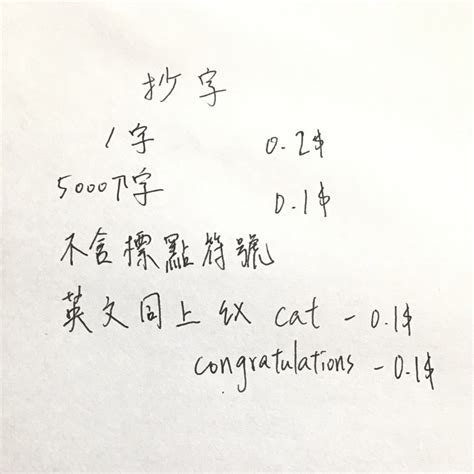 抄字
1字 0.2$
5000下字 0.1$
不含標點符號
英文同上 ex cat - 0.1$
congratulations - 0.1$